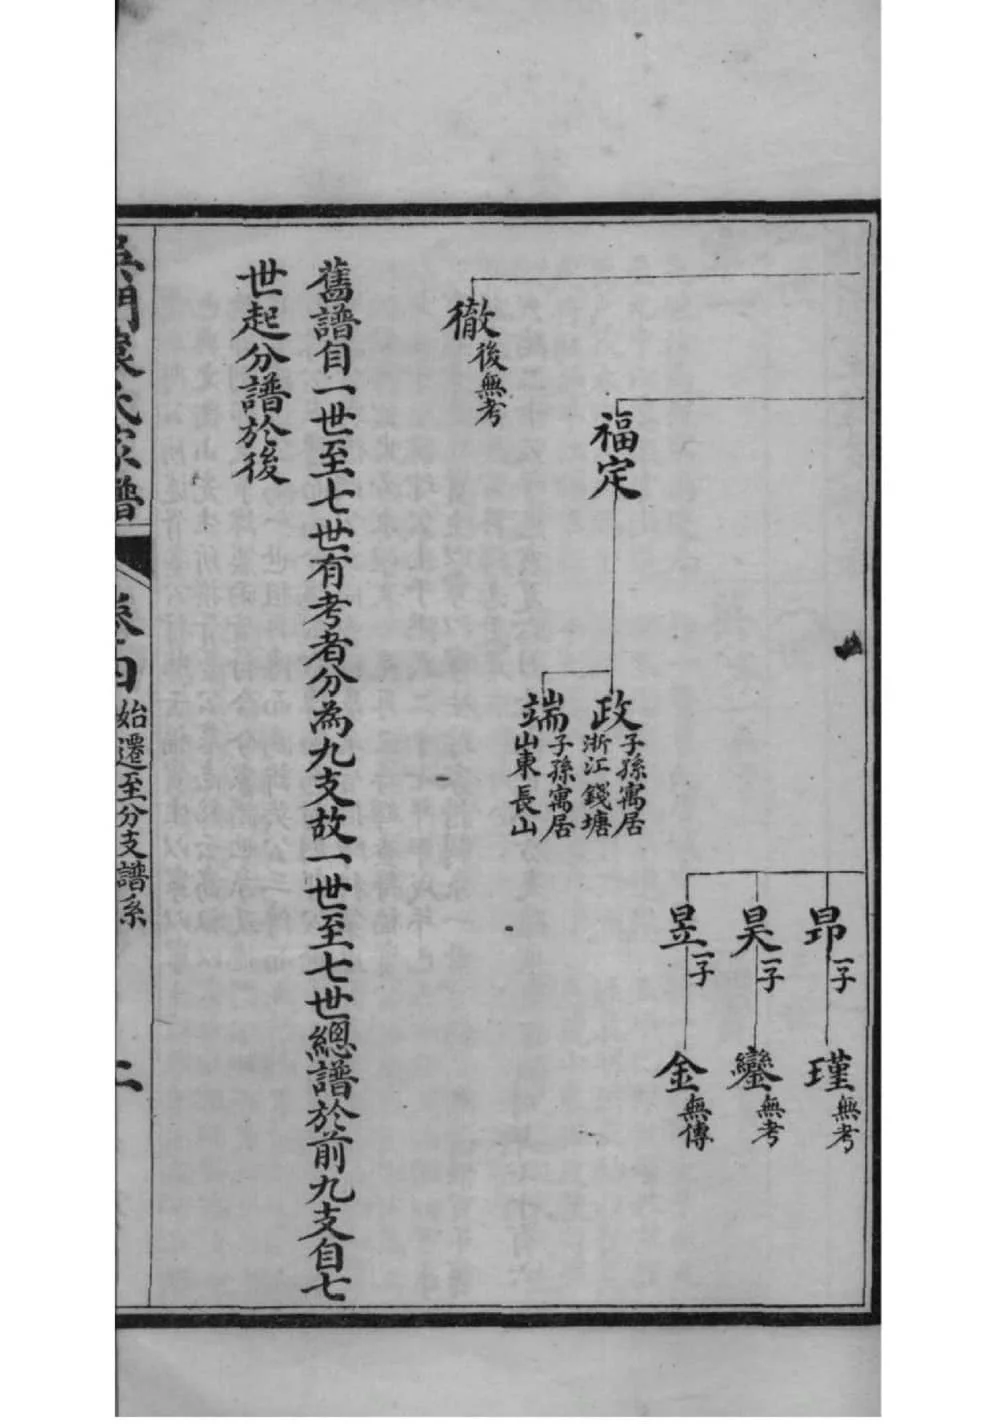 昂一子
瑾無考
昊一子
鑾無考
昱一子
金無傳
福定
政子孫寓居
浙江錢塘
端子孫寓居
山東長山
徹後無考
舊譜自一世至七世有考者分為九支故一世至七世總譜於前九支自七
世起分譜於後
吳門袁氏家譜
卷四
始遷至分支譜系
二